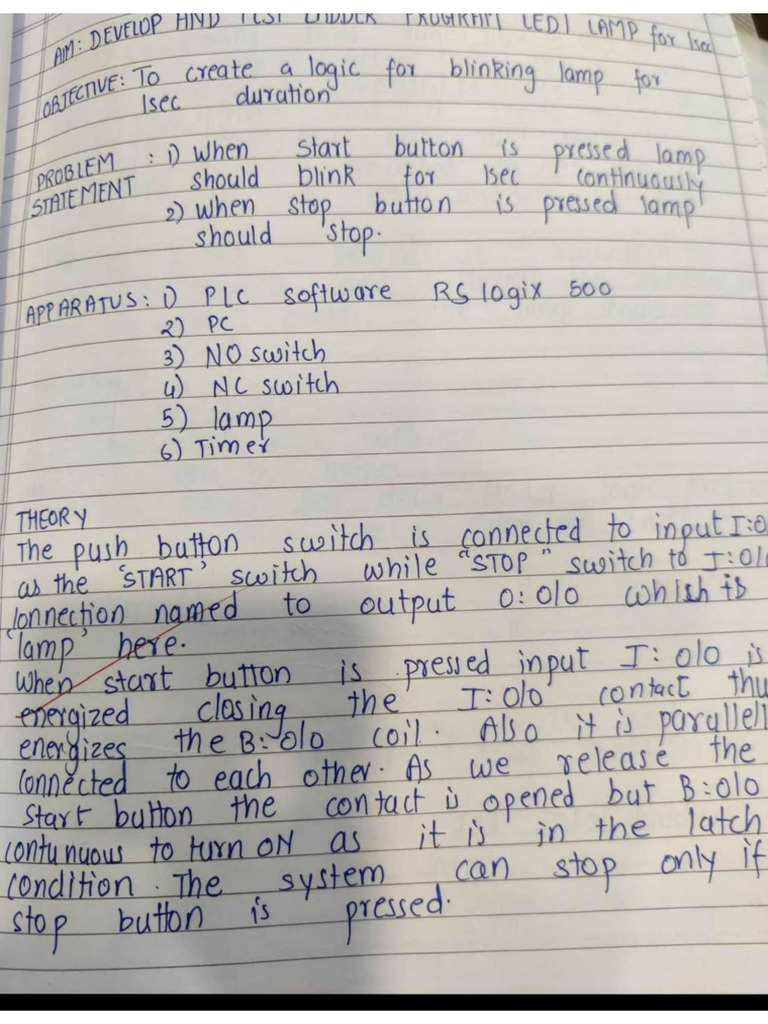 AIM: DEVELOP AND TEST LADDER PROGRAM LED/ LAMP for 1sec
OBJECTIVE: To create a logic for blinking lamp for
1sec duration
PROBLEM STATEMENT : 1) When start button is pressed lamp
should blink for 1sec continuously
2) When stop button is pressed lamp
should stop.
APPARATUS: 1) PLC software RS logix 500
2) PC
3) NO switch
4) NC switch
5) lamp
6) Timer
THEORY
The push button switch is connected to input I:0
as the 'START' switch while "STOP" switch to I:0/
connection named to output O:0/0 whish is
'lamp' here.
When start button is pressed input I:0/0 is
energized closing the I:0/0 contact thu
energizes the B:0/0 coil. Also it is parallell
connected to each other. As we release the
start button the contact is opened but B:0/0
contunuous to turn ON as it is in the latch
condition. The system can stop only if
stop button is pressed.